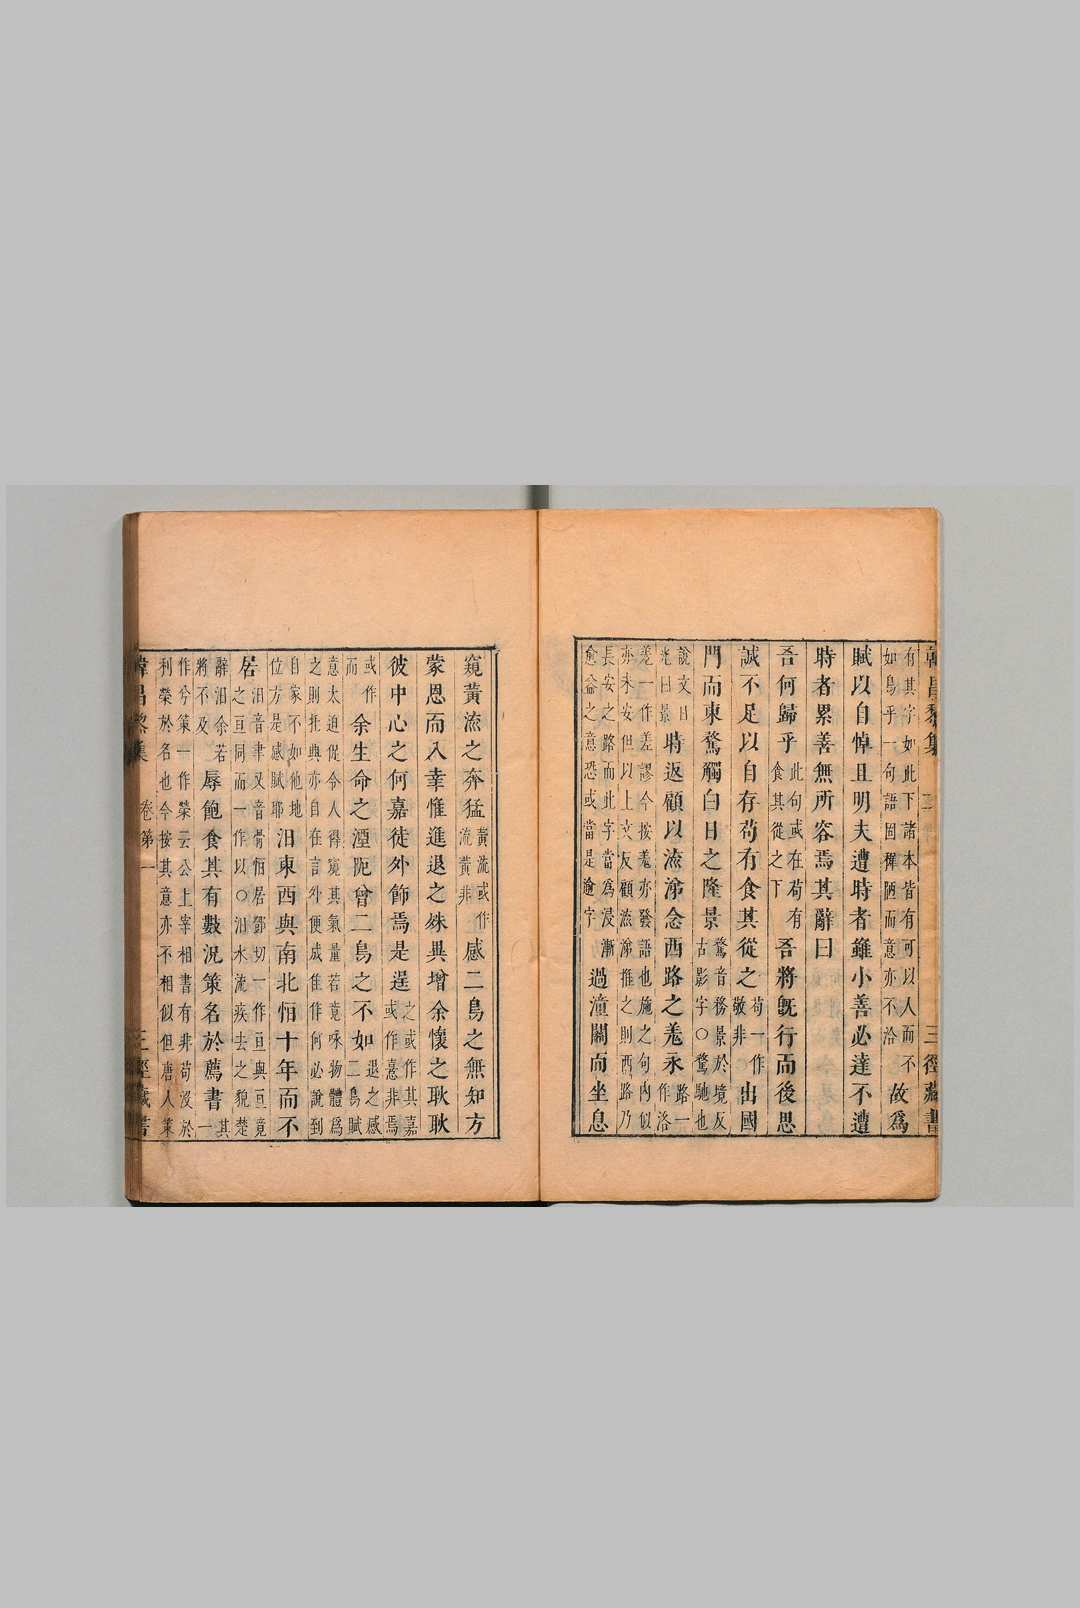 韓昌黎集 三徑藏書
有其字如此下諸本皆有可以人而不
如鳥乎一句語固穉陋而意亦不洽 故爲
賦以自悼且明夫遭時者雖小善必達不遭
時者累善無所容焉其辭曰
吾何歸乎 此句或在苟有 食其從之下 吾將旣行而後思
誠不足以自存苟有食其從之 苟一作 敬非 出國
門而東騖觸白日之隆景 騖音務景於境反 古影字○騖馳也
說文曰 光曰景 時返顧以流涕念西路之羗永 路一 作洛
羗一作差謬今按羗亦發語也施之句內似
亦未安但以上文反顧流涕推之則西路乃
長安之路而此字當爲浸漸
愈益之意恐或當是逾字 過潼關而坐息
窺黃流之奔猛 黃流或作 流黃非 感二鳥之無知方
蒙恩而入幸惟進退之殊異增余懷之耿耿
彼中心之何嘉徒外飾焉是逞 之或作其嘉 或作憙非焉
或作 而 余生命之湮阨曾二鳥之不如 退之感 二鳥賦
意太迫促令人得窺其氣量若竟咏物體爲
之則托興亦自在言外便成佳作何必說到
自家不如他地
位方是感賦耶 汨東西與南北恒十年而不
居 汨音聿又音骨恒居鄧切一作亘與亙竟 之亘同而一作以○汨水流疾去之貌楚
辭汨余若 將不及 辱飽食其有數況策名於薦書 其 一
作兮策一作榮云公上宰相書有非苟没於
利榮於名也今按其意亦不相似但唐人策
韓昌黎集 卷第一 三徑藏書